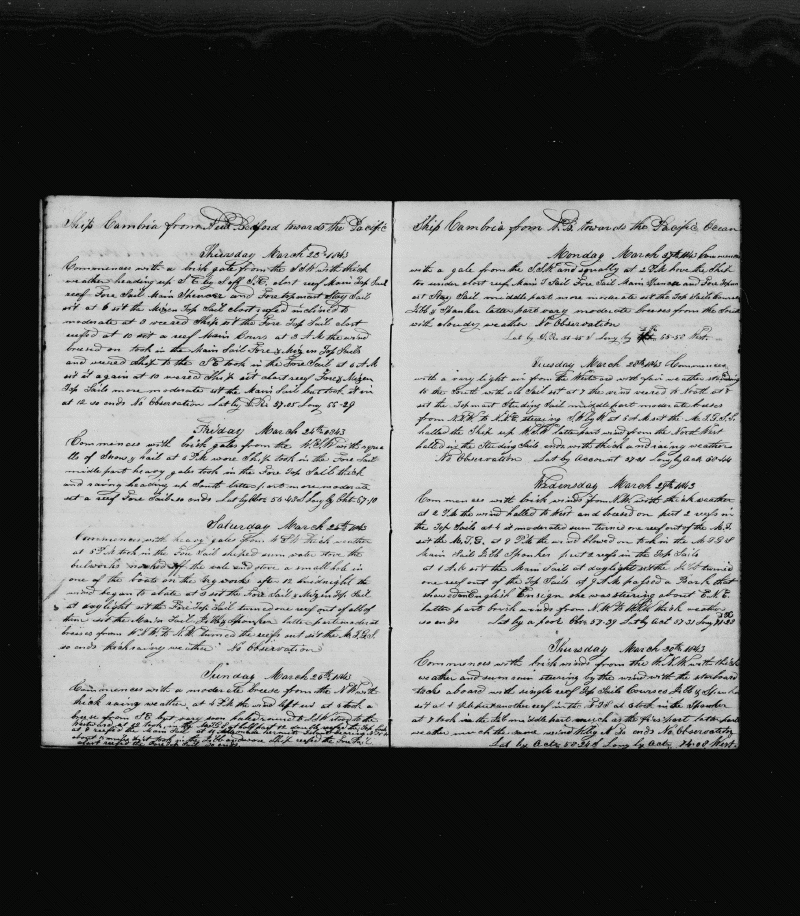 Ship Cambria from New Bedford towards the Pacific
Thursday March 23d 1843
Commences with a brisk gale from the S.S.W with thick
weather heading up S E by S off S.E. clost reef Main Top Sail
reef Fore Sail Main Spencer and Foretopmast Stay Sail
sit at 6 sit the Mizen Top Sail clost reefed inclined to
moderate at 8 weared Ship sit the Fore Top Sail clost
reefed at 10 sit a reef Main Course at 3 A.M the wind
breesed on took in the Main Sail Fore & Mizen Top Sails
and weared ship to the S.E took in the Fore Sail at 6 A.M
sit it again at 10 weared Ship sit clost reef Fore & Mizen
Top Sails more moderate sit the Main Sail but took it in
at 12 so ends No Observation Lat by D Re 37.05 Long 55-29
Friday March 24th 1843
Commences with brisk gales from the W.S.W with squa
lls of Snow & hail at 5 P.M wore Ship took in the Fore Sail
middle part heavy gales took in the Fore Top Sail thick
and raining heading up South latter part more moderate
sit a reef Fore Sail so ends Lat by Obs 50-43 S Long by Chr 57-10
Saturday March 25th 1843
Commences with heavy gales from W S W thick weather
at 5 P.M took in the Fore Sail shiped sum water stove the
bulworks washed off the rale and stove a small hole in
one of the boats on the after 12 midnight the
wind began to abate at 3 sit the Fore Sail & Mizen Top Sail
at daylight sit the Fore Top Sail turned one reef out of all of
them sit the Main Sail Jib & Spanker latter part moderate
breeses from W.S.W to N.W turned the reefs out sit the M.T.G.S
so ends thick raing weather No Observation
Sunday March 26th 1843
Commences with a moderate breese from the N W with
thick raing weather, at 4 P.M the wind left us at 6 took a
breese from S.E but very soon haled round to S.S.W stood to the
Westward
at 8 reefed the Main Sail at
about took in the Jib and wore Ship reefed the Fore Sail
clost reefed the Fore &
Ship Cambria from N.B. towards the Pacific Ocean
Monday March 27th 1843 Commences
with a gale from the S.S.W and squally at 2 P.M wore the Ship
too under clost reef Main T Sail Fore Sail Main Spencer and Fore Topm
ast Stay Sail middle part more moderate sit the Top Sails Courses
Jibb & Spanker latter part vary moderate breeses from the South
with cloudy weather No Observation
Lat by D.Re 51-45 S Long by 58-50 West
Tuesday March 28th 1843 Commences
with a very light air from the Westward with fair weather standing
to the South with all Sail sit at 7 the wind veered to North at 8
sit the Topmast Studing Sail middle part moderate breeses
from N.N.W to N.N.E steering S.W by W at 5 A.M sit the M.T.G.S.S.
halled the Ship up W.S.W latter part wind from the North West
halled in the Studing Sails ends with thick and raing weather
No Observation Lat by Account 57-21 Long by Act 60-44
Wednesday March 29th 1843
Commences with brisk winds from N.W. with thick weather
at 2 P.M the wind halled to West and breesed on put 2 reefs in
the Top Sails at 4 it moderated sum turned one reef out of the M.T.
sit the M.T.G. at 9 P.M the wind blowed on took in the M.T.G.S
Main Sail Jibb Spanker put 2 reefs in the Top Sails
at 1 A.M sit the Main Sail at daylight sit the Jib turned
one reef out of the Top Sails at 9 A.M passed a Bark that
showed an English Ensign she was steering about E.N.E
latter part brisk winds from N.W.W thick weather
so ends Lat by a poor Obs 57-39 Lat by Act 57-31 Long
Thursday March 30th 1843
Commences with brisk winds from the W.N.W with thick
weather and sum rain steering by the wind with the starboard
tacks aboard with single reef Top Sails Courses Jibb & Spanker
sit at 1 P.M put another reef in the T.S at 6 took in the Spanker
at 7 took in the Jib middle part much as the first part latter part
weather much the same wind W by N So ends No Observation
Lat by Act 58-24 S Long by Act 74-08 West.